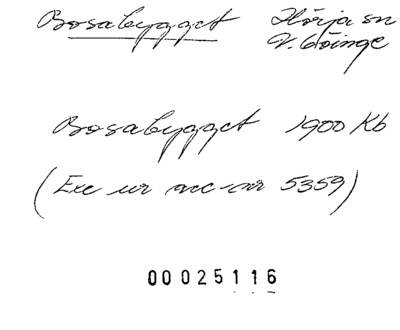 Bosabygget Hörja sn
V. Göinge
Bosabygget 1900 Kb
(Exc ur acc-nr 5359)
00025116